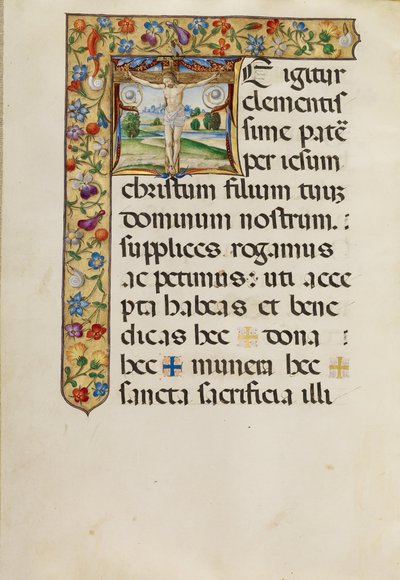 E igitur
clementis
sime patē
per iesum
christum filium tuuz
dominum nostrum. :
supplices rogamus
ac petimus : uti acce
pta habeas et bene
dicas hec ✠ dona :
hec ✠ munera hec ✠
sancta sacrificia illi